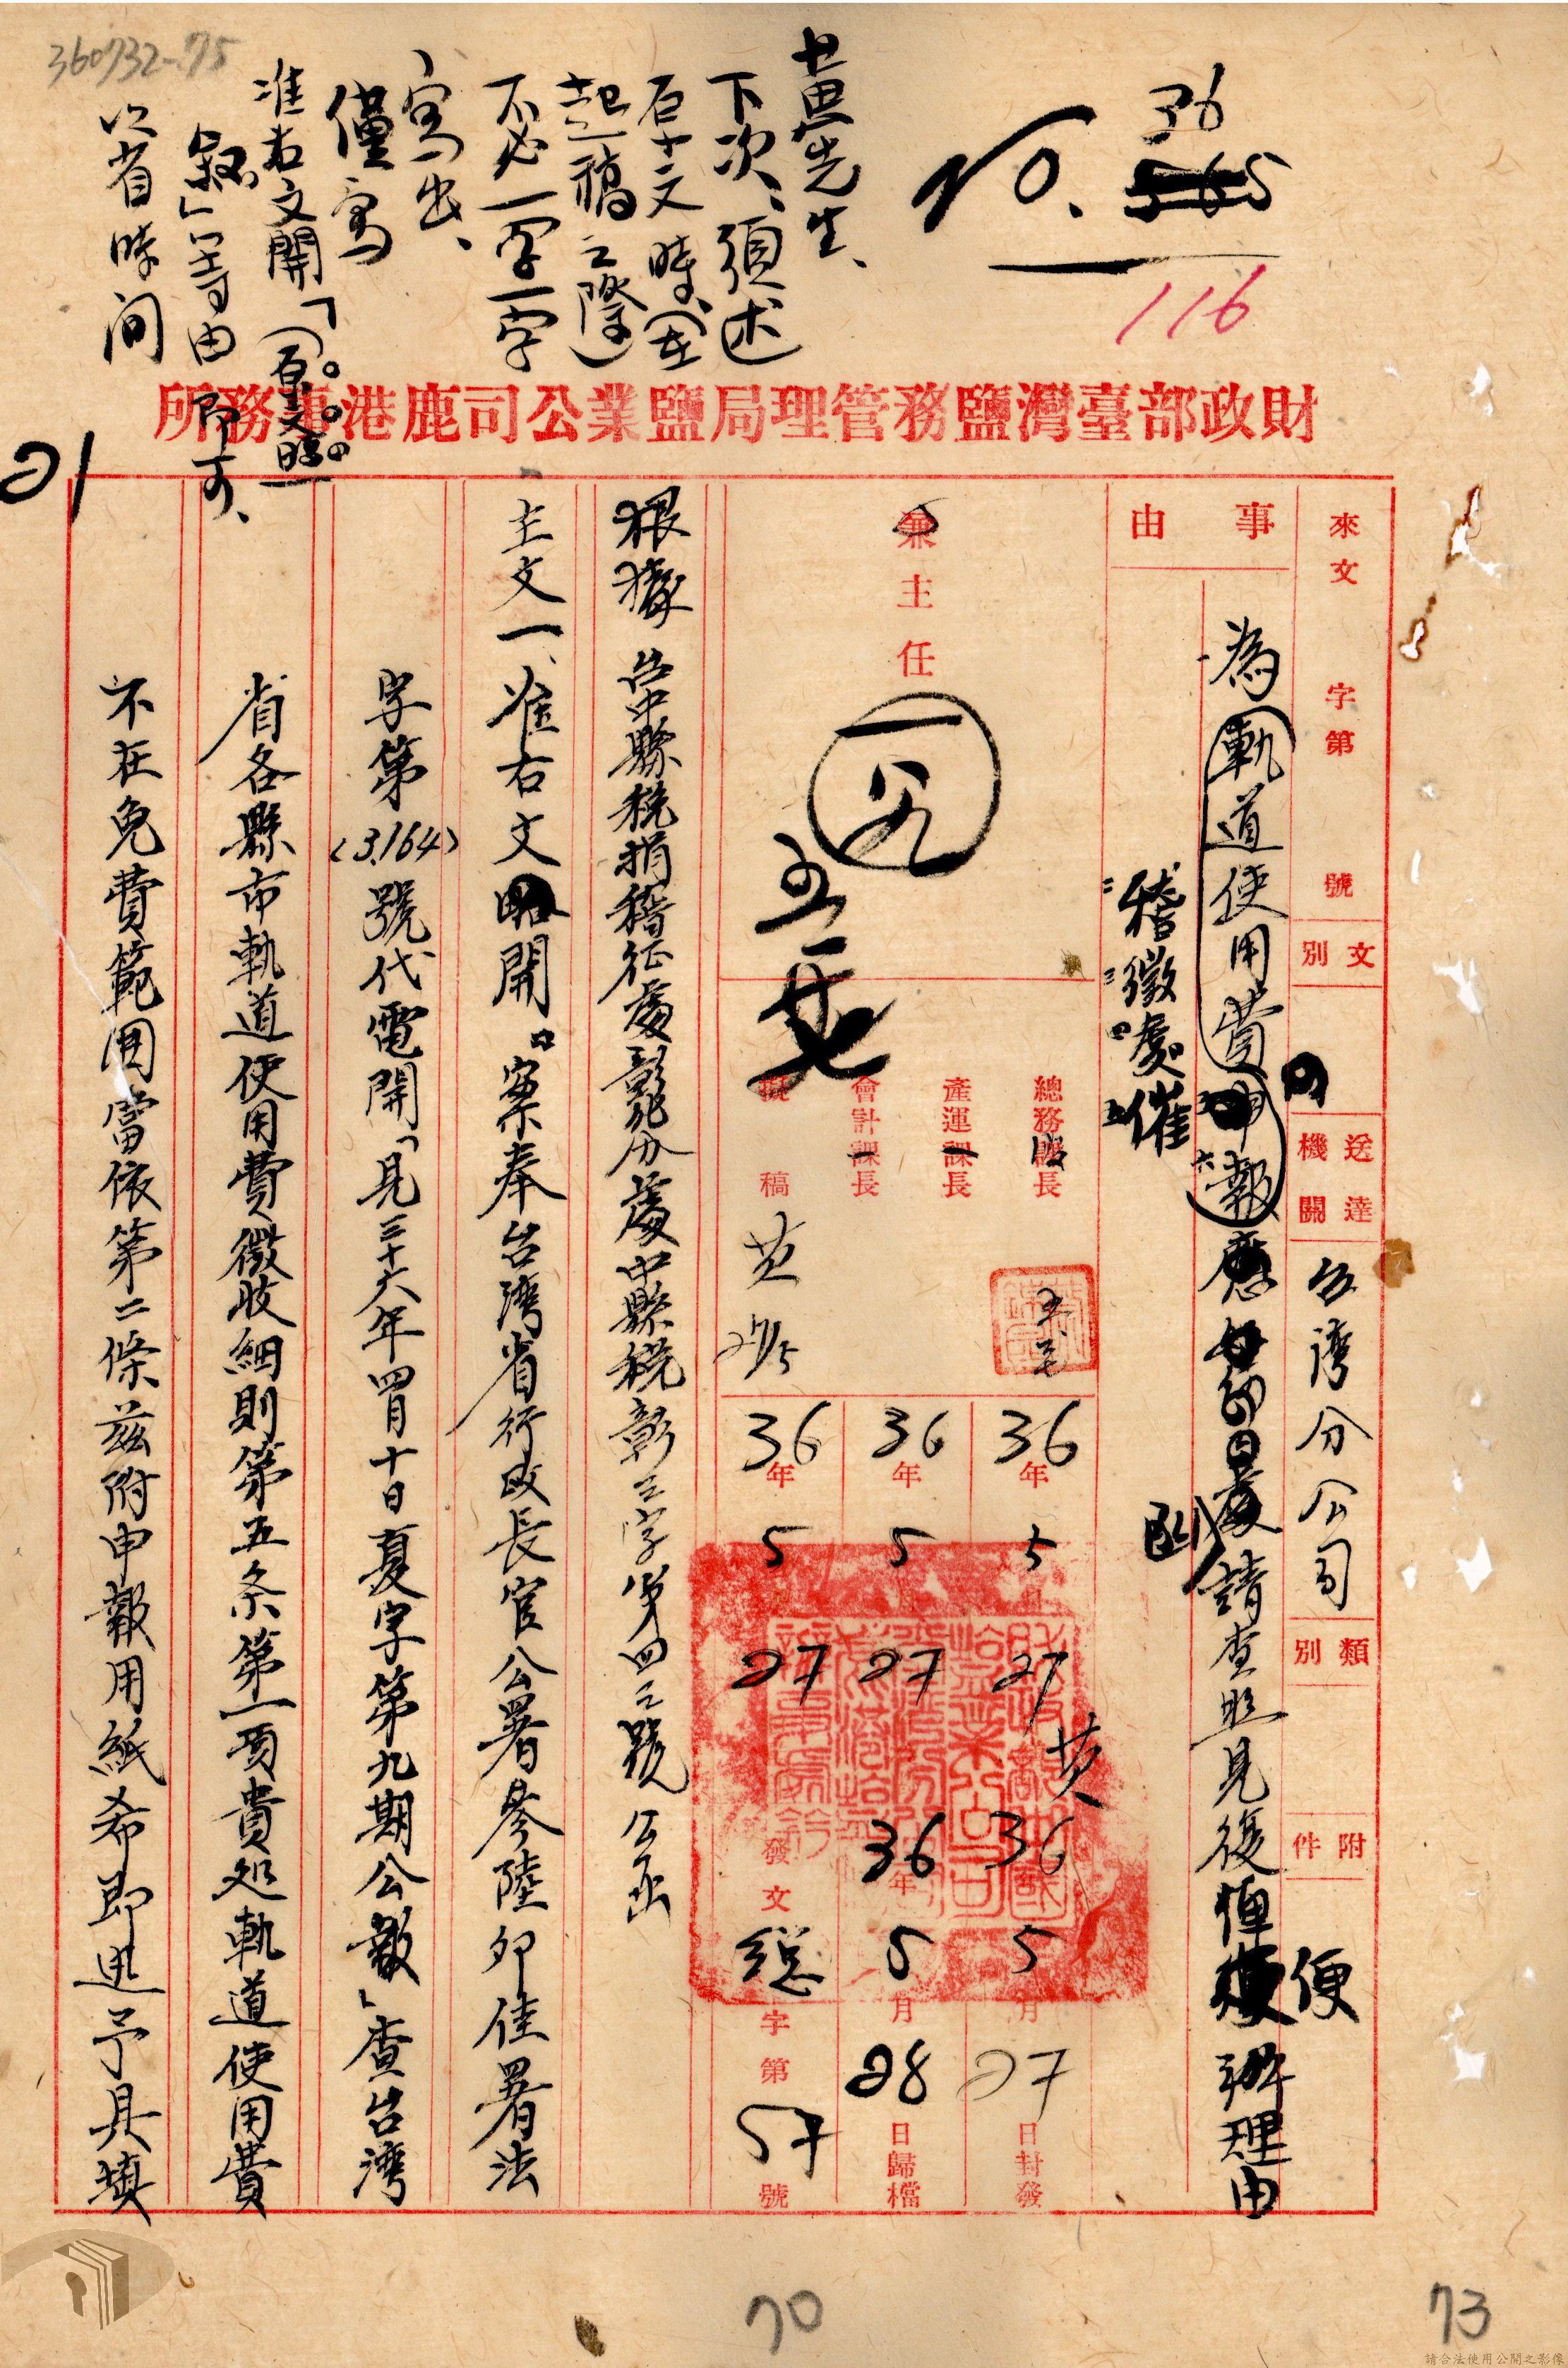 360732-75
36
565
116
黄先生、
下次、須述
石十文時、(在
起稿之際)
不必一字一字
寫出、
僅寫
准右文開「(原文照
叙」等由即可、
以省時间
21
財政部臺灣鹽務管理局鹽業公司鹿港事務所
來文 字第 號
文別
送達機關 台湾分公司
類別
附件
事由
為軌道使用費申報應
請查照見復俾便辦理由
稽徵處催
函
兼主任
總務課長
產運課長
會計課長
擬稿 黄 27/5
36年5月27
36年5月27
36年5月27
黄
36年5月27日封發
36年5月28日歸檔
發文總字第57號
根據台中縣稅捐稽征處彰化分處中縣税彰三字第四二號公函
主文一、准右文開案奉台湾省行政長官公署參陸卯佳署法
字第(3.164)號代電開「見三十六年四月十日夏字第九期公報」查台湾
省各縣市軌道使用費徵收細則第五条第一項貴処軌道使用費
不在免費範囲當依第二條茲附申報用紙希即迅予具填
70
73
請合法使用公開之影像